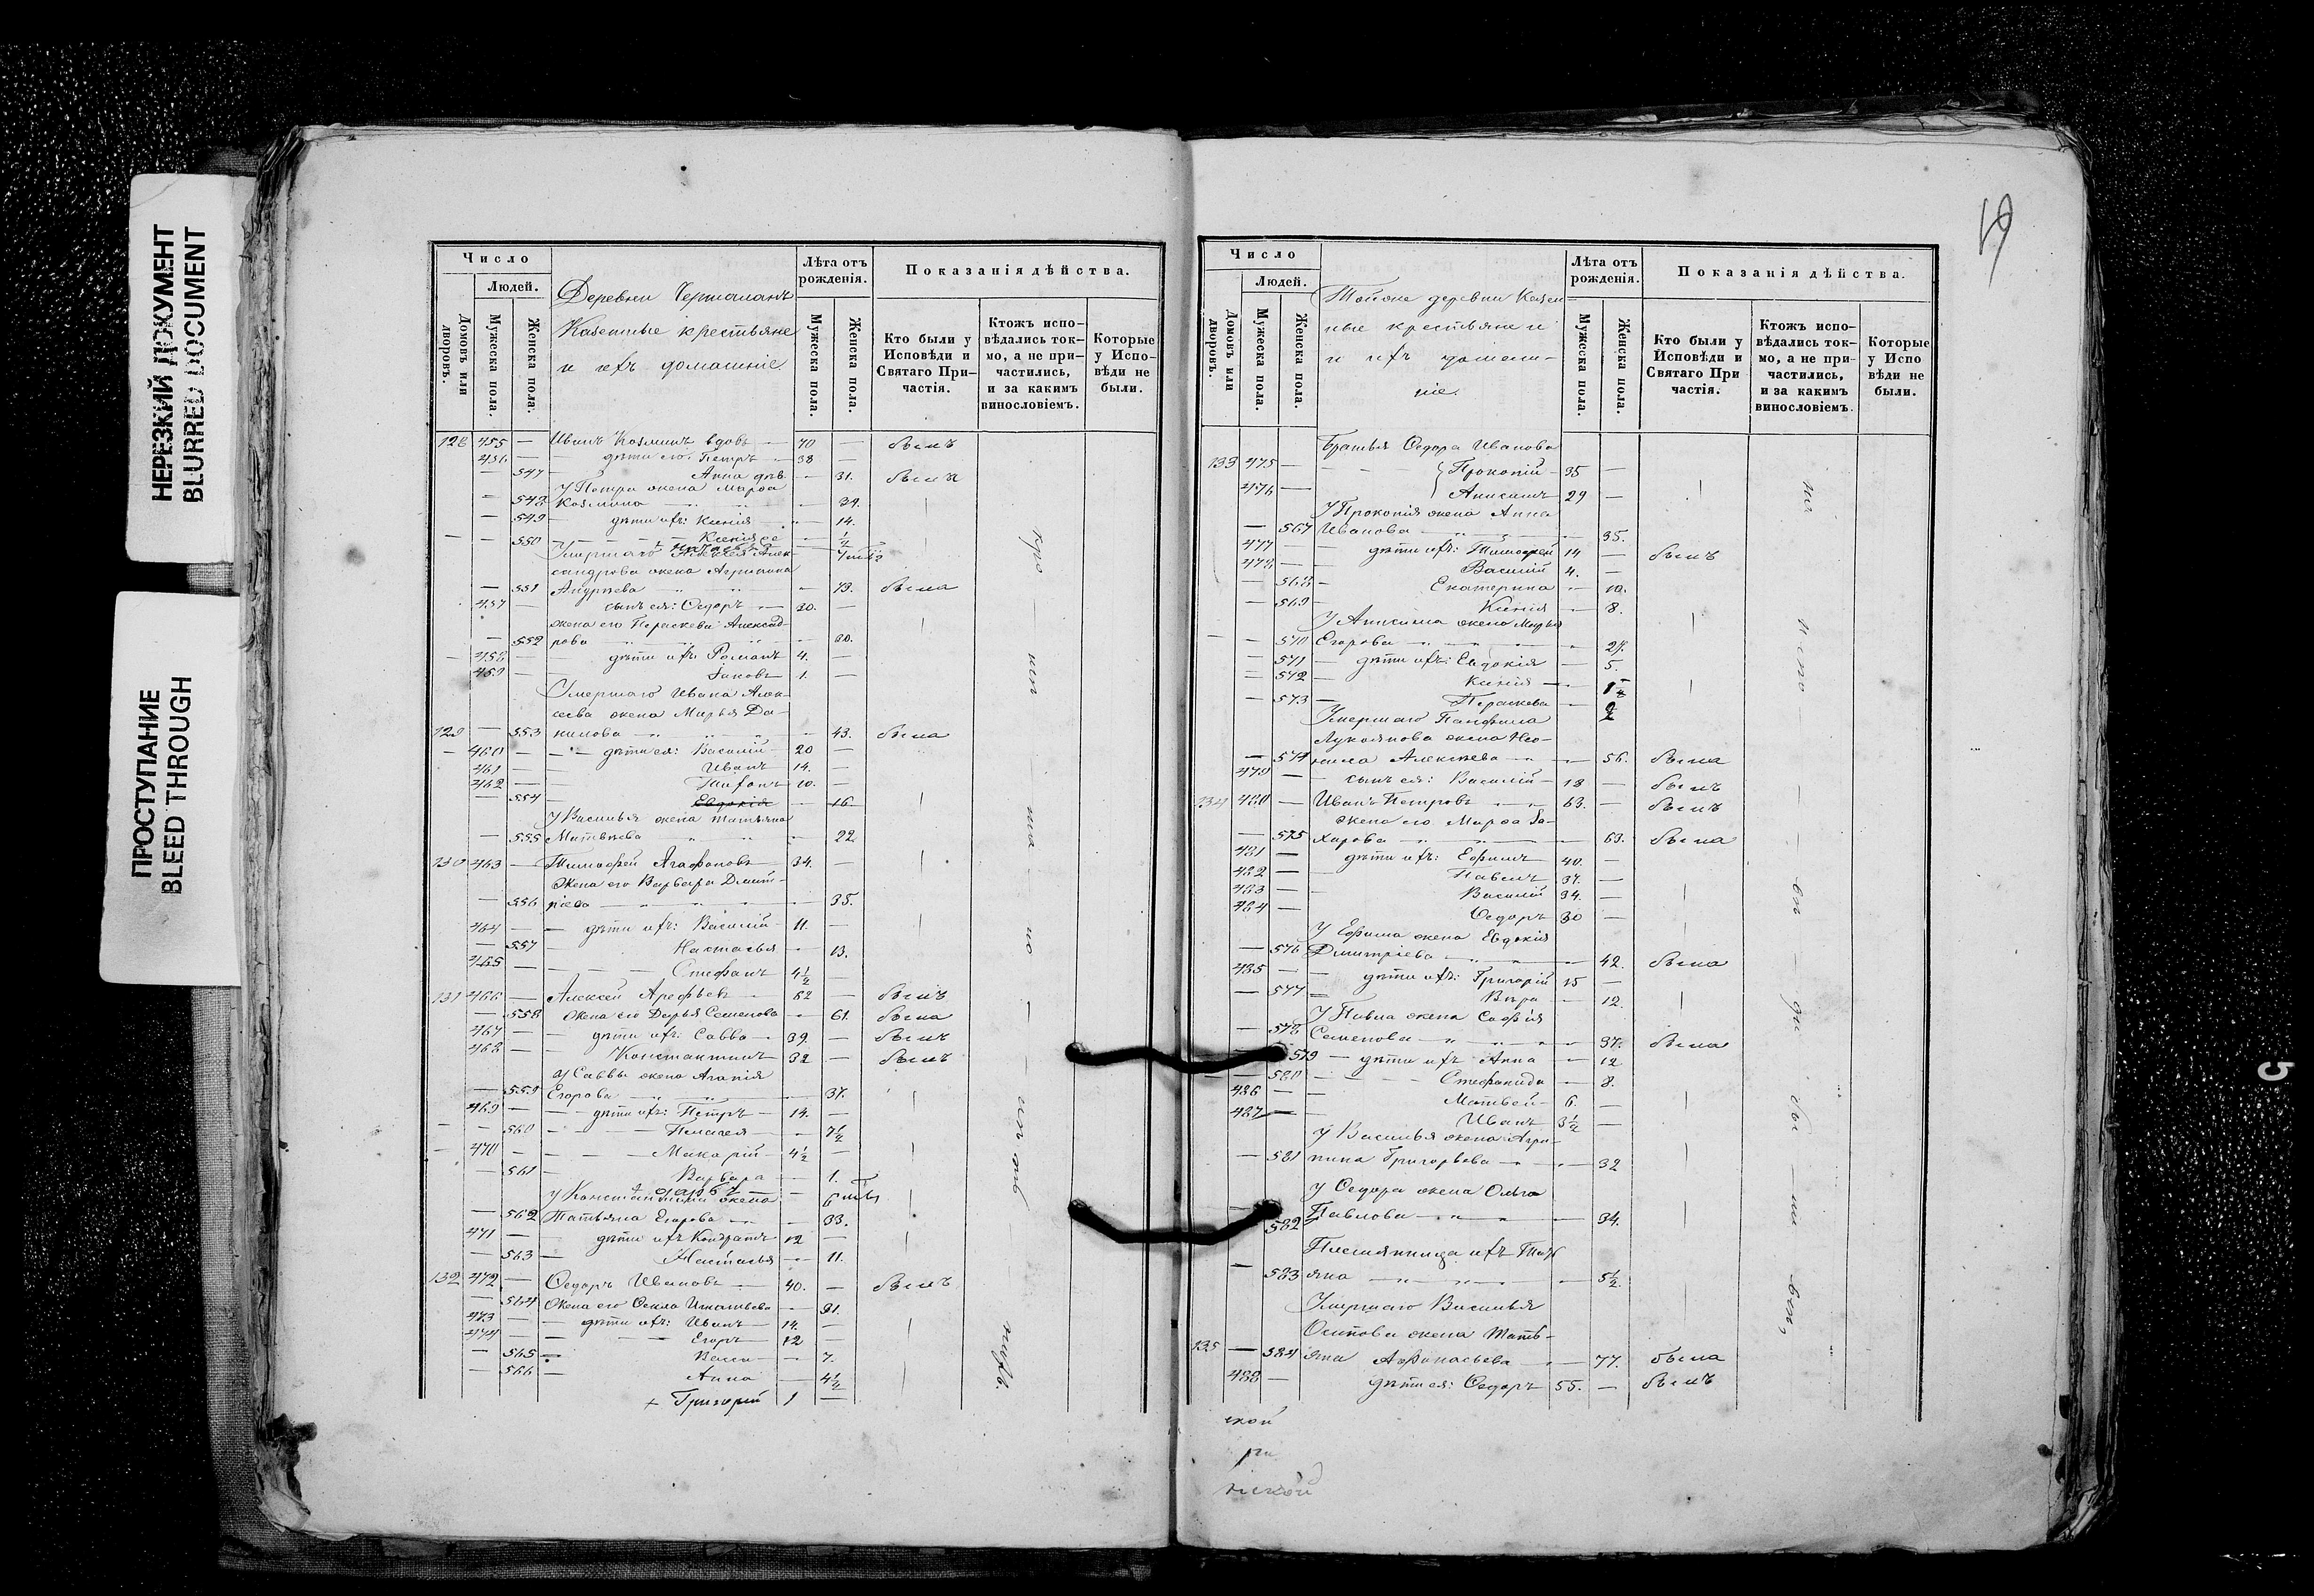 НЕРЕЗКИЙ ДОКУМЕНТ
BLURRED DOCUMENT
ПРОСТУПАНИЕ
BLEED THROUGH
Число
Людей.
Домовъ или дворовъ.
Мужеска пола.
Женска пола.
Деревни
Казенные крестьяне
и ихъ домашніе.
Лѣта отъ рожденія.
Мужеска пола.
Женска пола.
Показанія дѣйства.
Кто были у Исповѣди и Святаго При-частія.
Ктожъ испо-вѣдались ток-мо, а не при-частились, и за какимъ винословіемъ.
Которые у Испо-вѣди не были.
128 455 — Иванъ Козминъ вдовъ — 70 — былъ
— 456 — дѣти его: Петръ — 38 —
— 547 — Анна дѣв. — 31. была
У Петра жена Марѳа
— 548 Козмина — 39.
— 549 — дѣти ихъ: Ксенія — 14.
— — 550 — Ксенія — ½
Умершаго Алексея Алек-
сандрова жена Агрипина
— 551 Андреева — 73. была
457 — сынъ ея: Ѳедоръ — 30. —
жена его Параскева Александ-
— 552 рова — 30.
— 458 — дѣти ихъ: Романъ 4. —
459 — Іаковъ 1. —
Умершаго Ивана Алек-
сеева жена Марья Да-
129 — 553 нилова — 43. была
— 460 — дѣти ея: Василій — 20 —
461 — Иванъ — 14. —
462 — Тихонъ — 10. —
— 554 — Евдокія — 16
У Василья жена Татьяна
— 555 Матвѣева — 22
130 463 — Тимофей Агафоновъ 34. —
Жена его Варвара Дмит-
— 556 ріева — 35.
464 — дѣти ихъ: Василій — 11. —
— 557 Настасья — 13.
465 — Стефанъ 4½
131 466 — Алексей Арефьевъ — 62 — былъ
— 558 Жена его Дарья Семенова — 61. была
467 — дѣти ихъ: Савва — 39. — былъ
468 — Константинъ 32 — былъ
У Саввы жена Агапія
— 559 Егорова — 37.
469 — дѣти ихъ: Петръ — 14. —
— — 560 — Пелагея — 7½
— 470 — Макарій — 4½ —
— 561 — Варвара — 1.
У Константина жена
— 562 Татьяна Егорова — 33.
471 — дѣти ихъ Кондратъ 12 —
— 563 — Настасья — 11.
132 472 — Ѳедоръ Ивановъ — 40. — былъ
— 564 Жена его Ѳекла Игнатьева — 31.
473 — дѣти ихъ: Иванъ — 14. —
474 — Егоръ — 12 —
— 565 — Васса — 7.
— 566 — Анна — 4½
+ Григорій 1 —
19
Число
Людей.
Домовъ или дворовъ.
Мужеска пола.
Женска пола.
Тойже деревни Казен-
ные крестьяне и
и ихъ домаш-
ніе.
Лѣта отъ рожденія.
Мужеска пола.
Женска пола.
Показанія дѣйства.
Кто были у Исповѣди и Святаго При частія.
Ктожъ испо-вѣдались ток-мо, а не при-частились, и за какимъ винословіемъ.
Которые у Испо вѣди не были.
Братья Ѳедора Иванова
133 475 — Прокопій — 35 —
476 Анисимъ — 29 —
У Прокопія жена Анна
— 567 Иванова — 35.
477 — дѣти ихъ: Тимофей 14 — былъ
478 — Василій 4. —
— 568 — Екатерина — 10.
— 569 — Ксенія — 8.
У Анисима жена Марья
— — 570 Егорова — 27.
— 571 — дѣти ихъ: Евдокія — 5.
— 572 — Ксенія —
— 573 — Параскева —
Умершаго Панфила
Лукоянова жена Нео-
— 574 нила Алексеева — 56. была
479 — сынъ ея: Василій — 18 — былъ
134 480 — Иванъ Петровъ — 63. — былъ
Жена его Марѳа За-
— 575 харова — 63. была
481 — дѣти ихъ: Ефимъ 40. —
482 — Павелъ 37. —
483 — Василій 34. —
484 — Ѳедоръ 30 —
У Ефима жена Евдокія
— 576 Дмитріева — 42. была
485 — дѣти ихъ: Григорій 15 —
— 577 — Вѣра — 12.
У Павла жена Софія
— 578 Семенова — 37. была
579 — дѣти ихъ Анна — 12
— 580 — Стефанида — 8.
486 — Матвей — 6. —
487 — Иванъ 3½ —
У Василья жена Агри-
— 581 пина Григорьева — 32
У Ѳедора жена Ольга
582 Павлова — 34.
Племянница ихъ Тать
— 583 яна — 5½
Умершаго Василья
Осипова жена Тать-
135 — 584 яна Афонасьева — 77. была
488 — дѣти ея: Ѳедоръ 55. — былъ
ской
ской
5